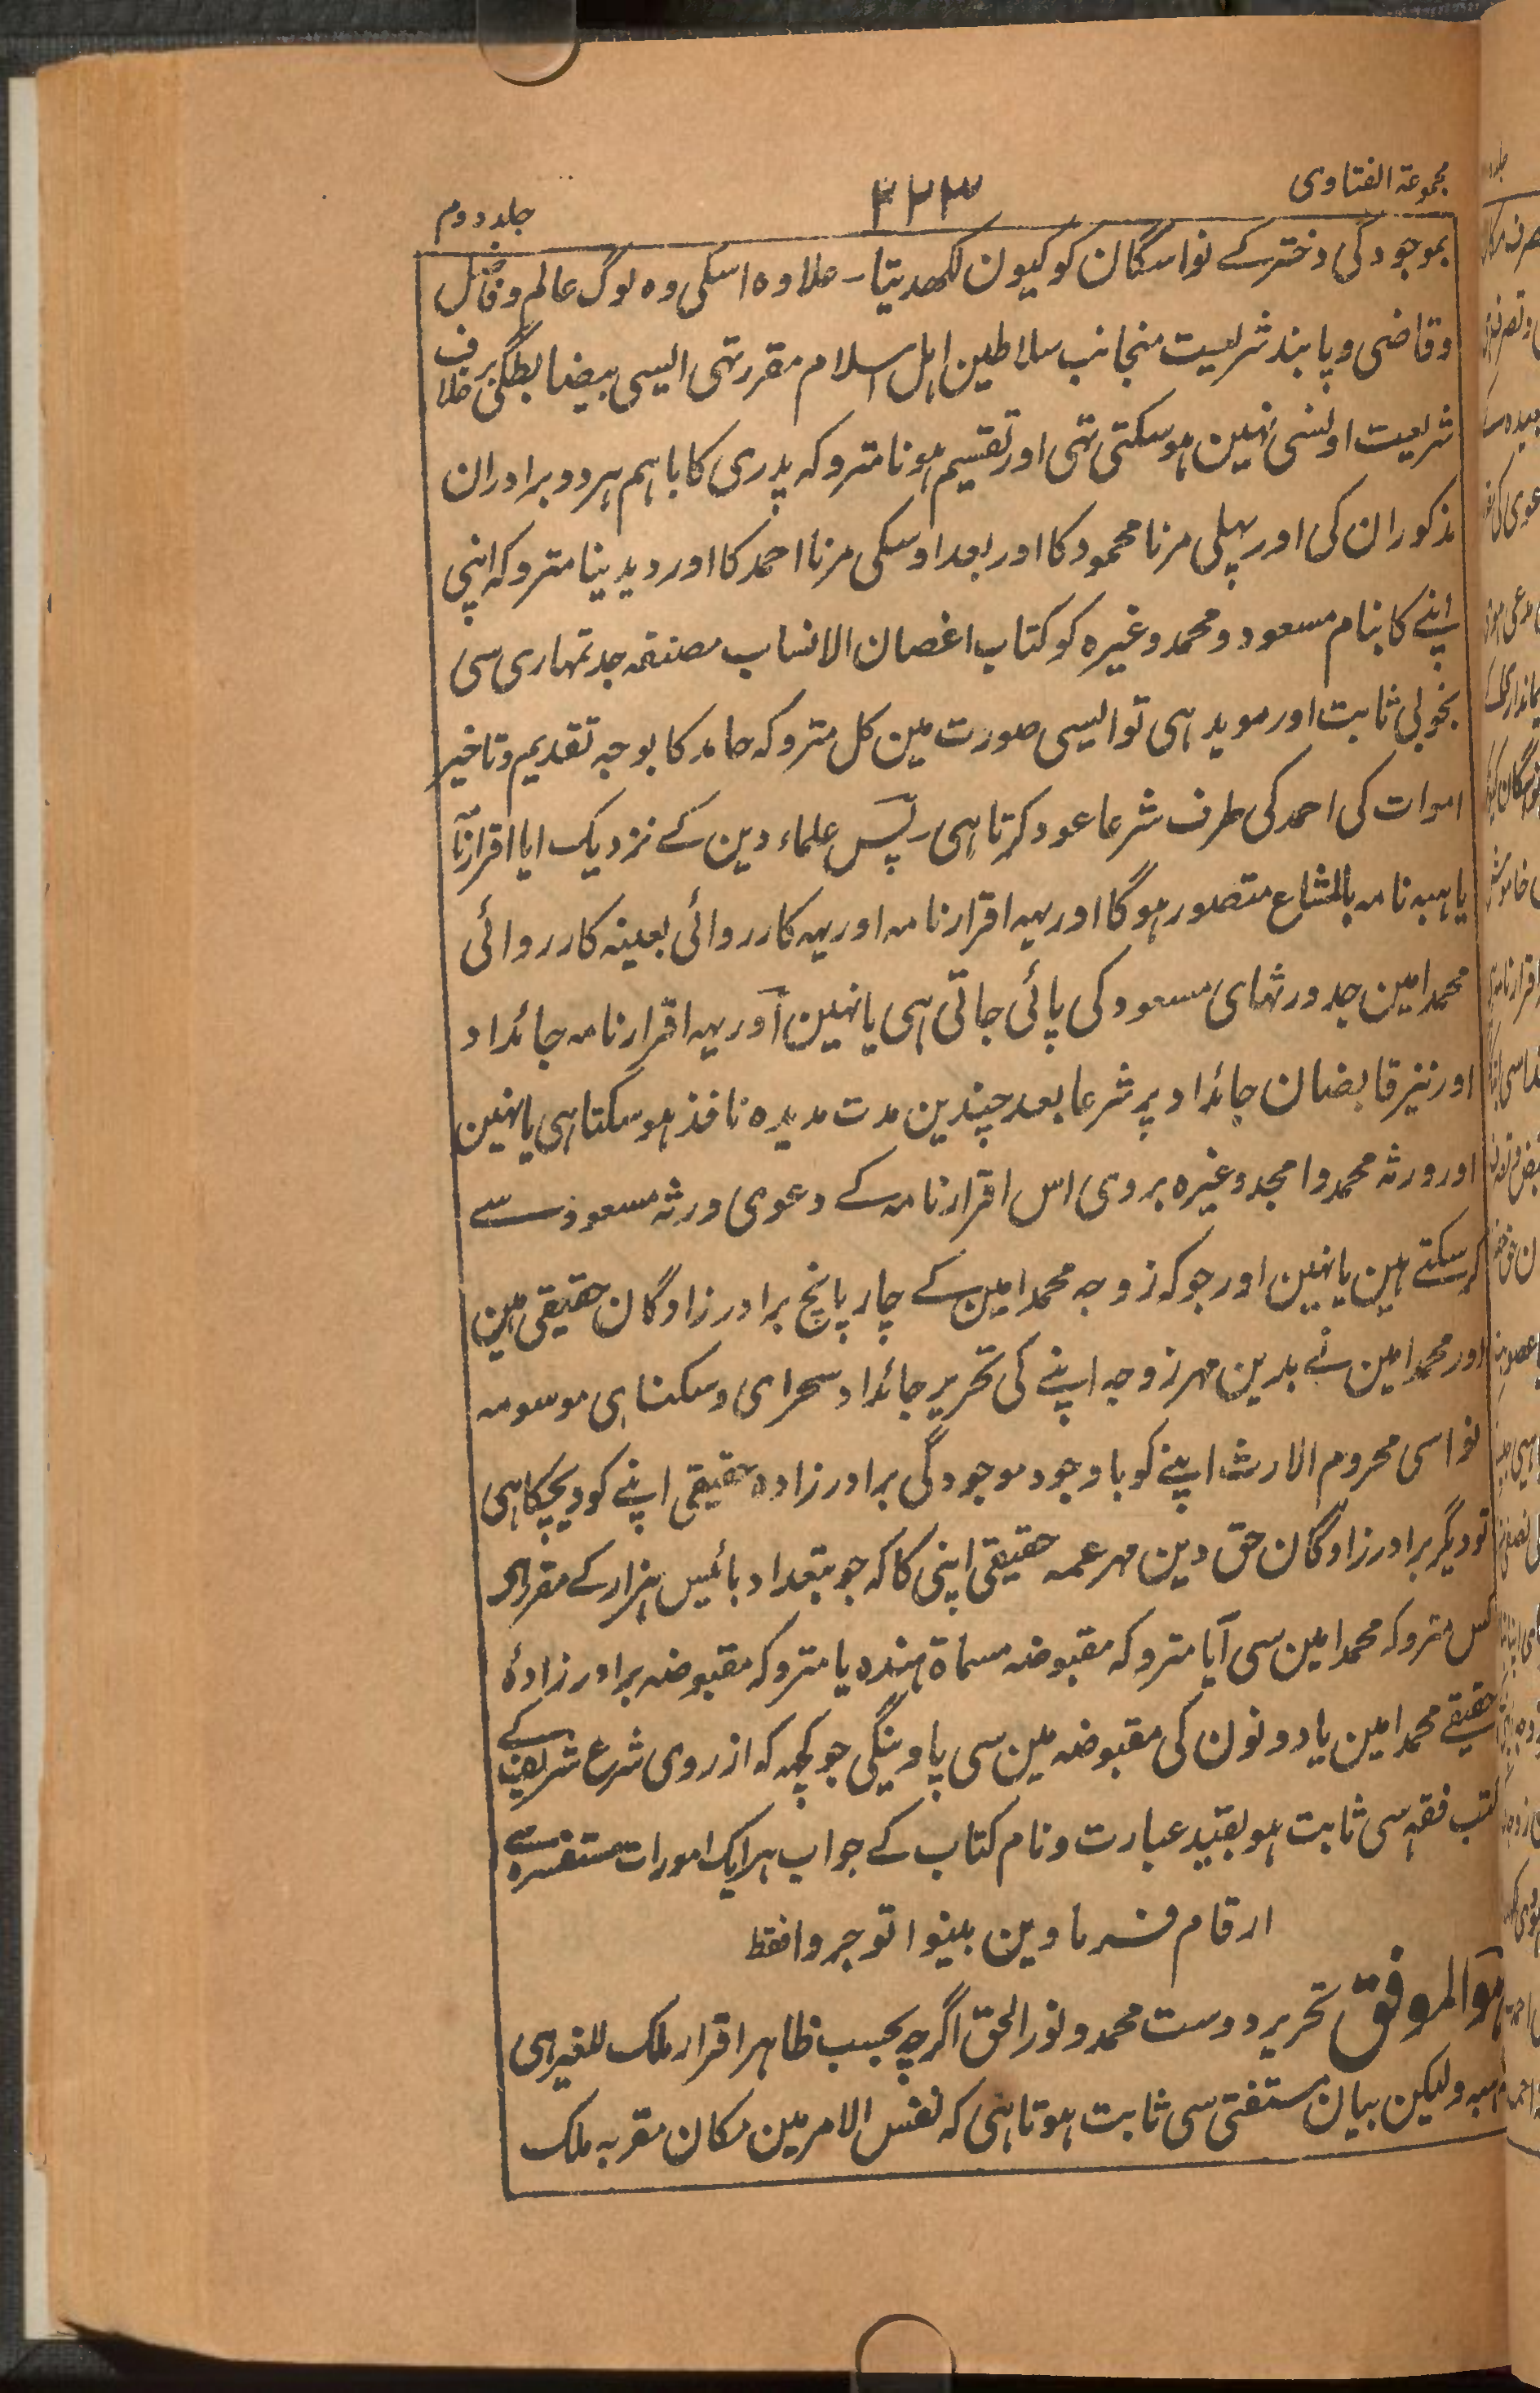 مجموعۃ الفتاوی
۳۲۳
جلد دوم
بموجودگی دختر کے نواسگان کو کیون لکھدیتا۔ علاوہ اسکی وہ لوگ عالم و فاضل
و قاضی و پابند شریعت منجانب سلاطین اہل اسلام مقرر تہی ایسی بیضابطگی برخلاف
شریعت اونسی نہین ہوسکتی تہی اور تقسیم ہونا متروکہ پدری کا باہم ہر دو برادران
مذکوران کی اور پہلی مرنا محمود کا اور بعد اوسکی مرنا احمد کا اور دیدینا متروکہ اپنی
اپنے کا بنام مسعود و محمد وغیرہ کو کتاب اغصان الانساب مصنفہ جد تمہاری سی
بخوبی ثابت اور موید ہی تو ایسی صورت مین کل متروکہ حامد کا بوجہ تقدیم و تاخیر
اموات کی احمد کی طرف شرعا عود کرتا ہی۔ پس علماء دین کے نزدیک ایا اقرارنامہ
یا ہبہ نامہ بالمشاع متصور ہوگا اور یہہ اقرارنامہ اور یہہ کارروائی بعینہ کارروائی
محمد امین جد ورثہای مسعود کی پائی جاتی ہی یا نہین اور یہہ اقرارنامہ جائداد
اور نیز قابضان جائداد پر شرعا بعد چندین مدت مدیدہ نافذ ہوسکتا ہی یا نہین
اور ورثہ محمد و امجد وغیرہ بروی اس اقرارنامہ کے دعوی ورثہ مسعود سے
کرسکتے ہین یا نہین اور جو کہ زوجہ محمد امین کے چار پانچ برادرزادگان حقیقی ہین
اور محمد امین نے بدین مہر زوجہ اپنے کی تحریر جائداد سحرای و سکنای موسومہ
نواسی محروم الارث اپنے کو باوجود موجودگی برادرزادہ حقیقی اپنے کو دیچکا ہی
تو دیگر برادرزادگان حق دین مہر عمہ حقیقی اپنی کا کہ جو بتعداد بائیس ہزار کے مقرر ہی
کس متروکہ محمد امین سی آیا متروکہ مقبوضہ مسماۃ ہندہ یا متروکہ مقبوضہ برادرزادۂ
حقیقے محمد امین یا دونون کی مقبوضہ مین سی پاوینگی جو کچہہ کہ از روی شرع شریف کے
کتب فقہ سی ثابت ہو بقید عبارت و نام کتاب کے جواب ہر ایک امورات مستفسرہ سے
ارقام فرماوین بینوا توجروا فقط
ہو الموفق تحریر دوست محمد و نور الحق اگرچہ بحسب ظاہر اقرار ملک للغیر ہی
ہبہ ولیکن بیان مستفتی سی ثابت ہوتا ہی کہ نفس الامر مین مکان مقر بہ ملک